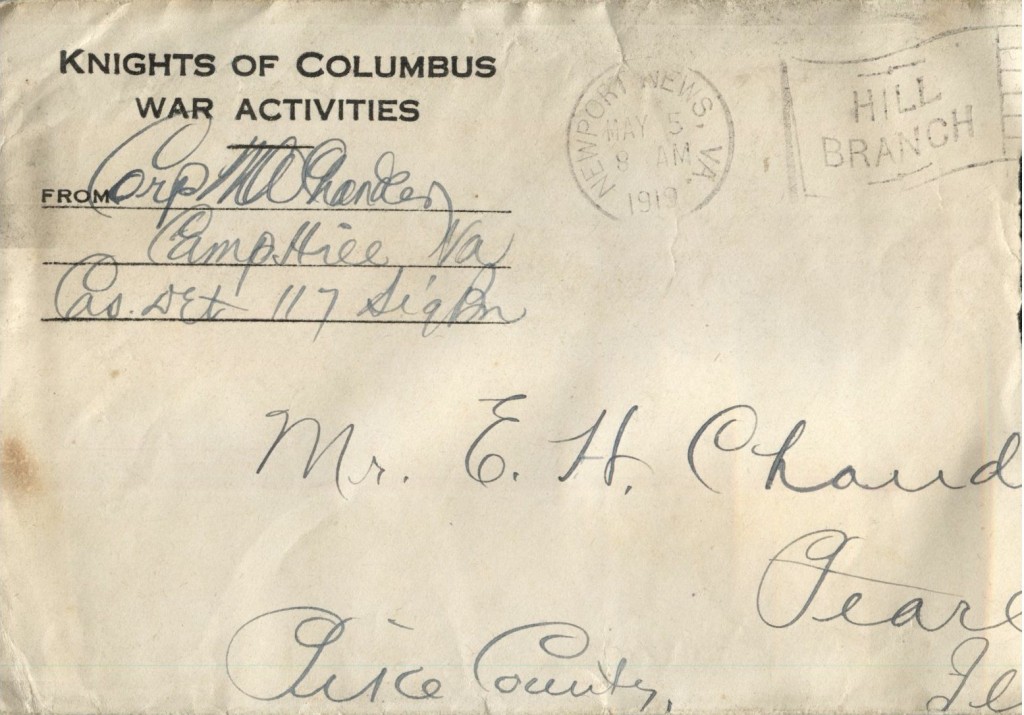 KNIGHTS OF COLUMBUS
WAR ACTIVITIES
FROM Corp Chandler
Camp Hill Va
Cas. Det 117 Sig Bn
NEWPORT NEWS, VA.
MAY 5
8 AM
1919
HILL
BRANCH
Mr. E. H. Chand
Pearl
Pike County,